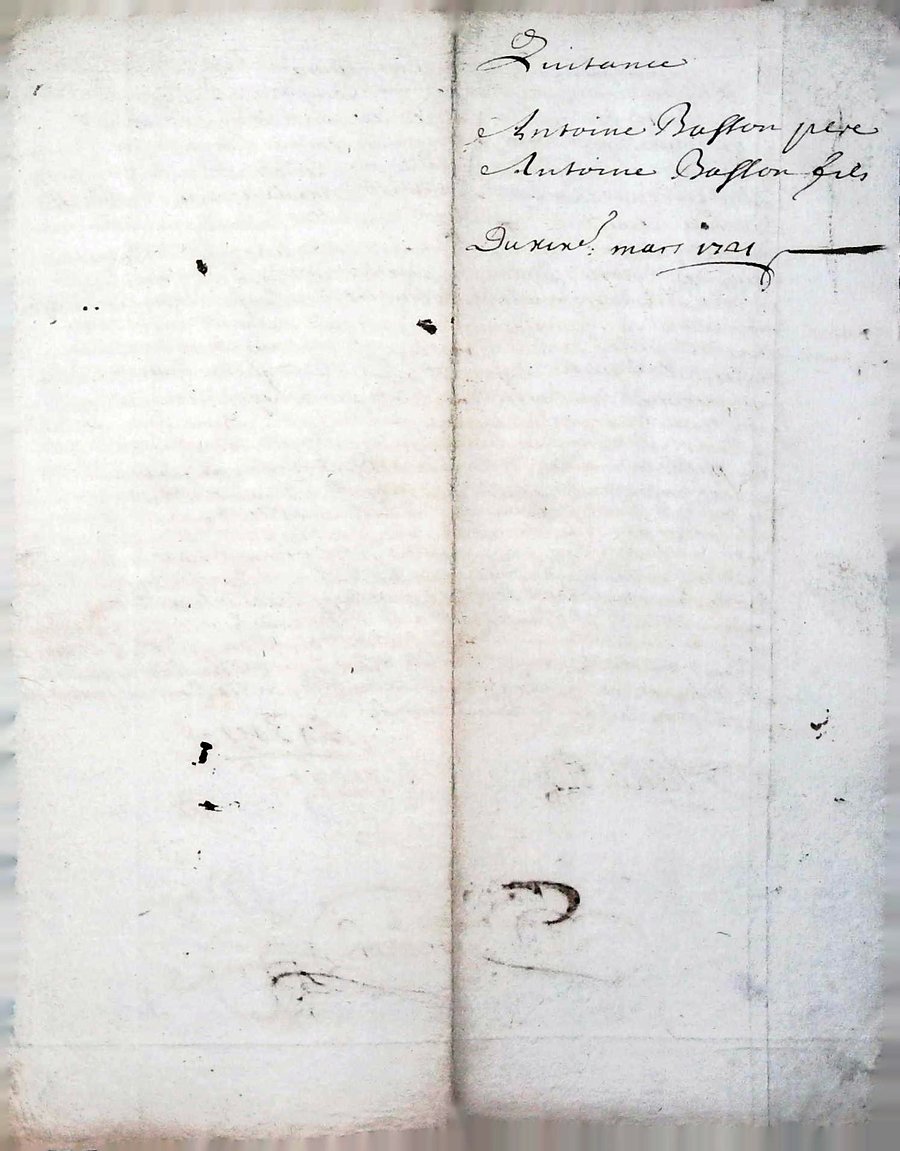 Quitance
Antoine Basson pere
Antoine Basson fils
Du mars 1721